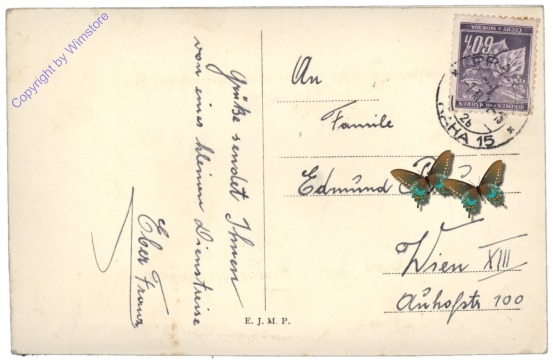 Copyright by Wimstore
Grüße sendet Ihnen
von einer kleinen Dienstreise
Eber Franz
E. J. M. P.
An
Familie
Edmund
Wien XIII
Auhofstr 100
ČECHY A MORAVA
60h
BÖHMEN UND MÄHREN
PRAHA 15